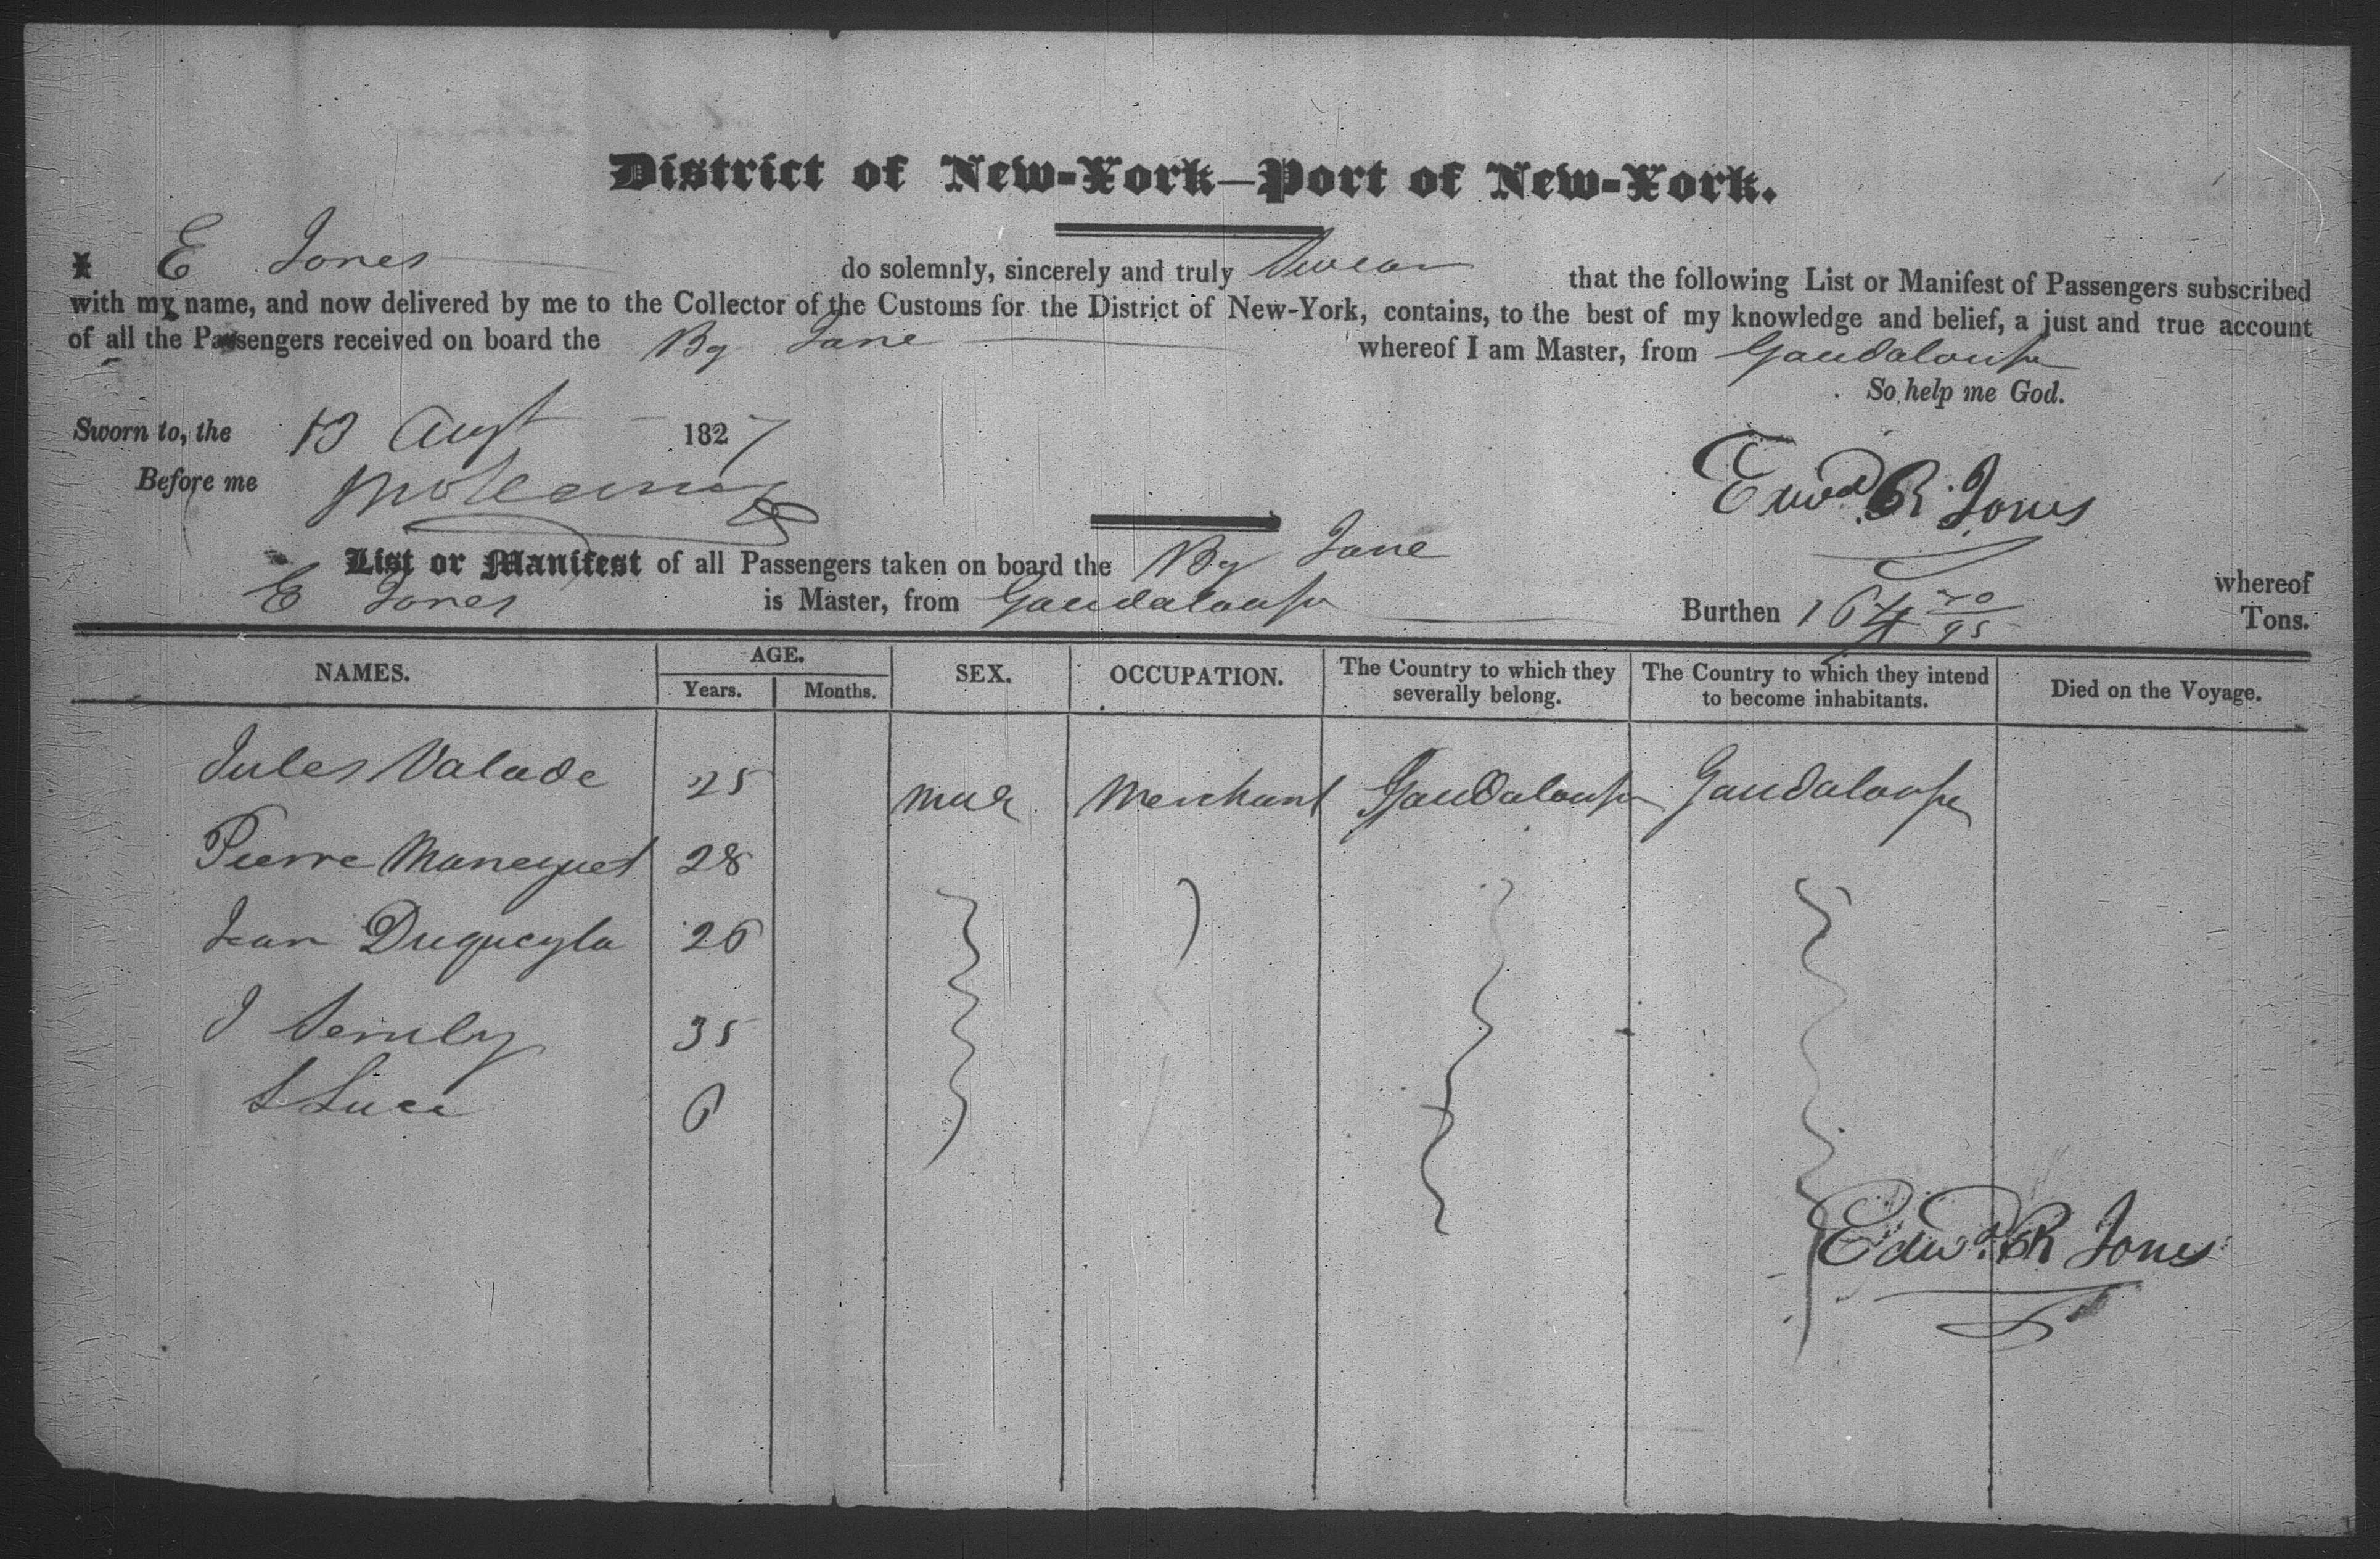 District of New-York—Port of New-York.
I E Jones do solemnly, sincerely and truly Swear that the following List or Manifest of Passengers subscribed
with my name, and now delivered by me to the Collector of the Customs for the District of New-York, contains, to the best of my knowledge and belief, a just and true account
of all the Passengers received on board the Bg Jane whereof I am Master, from Gaudaloupe
So help me God.
Sworn to, the 13 Augt 1827
Before me
Edwd R Jones
List or Manifest of all Passengers taken on board the Bg Jane whereof
E Jones is Master, from Gaudaloupe Burthen 164 70/95 Tons.
NAMES. AGE. Years. Months. SEX. OCCUPATION. The Country to which they severally belong. The Country to which they intend to become inhabitants. Died on the Voyage.
Jules Valade 25 Male Merchant Gaudaloupe Gaudaloupe
Pierre 28
Jean 26
J 35
L Luce 6
Edwd R Jones